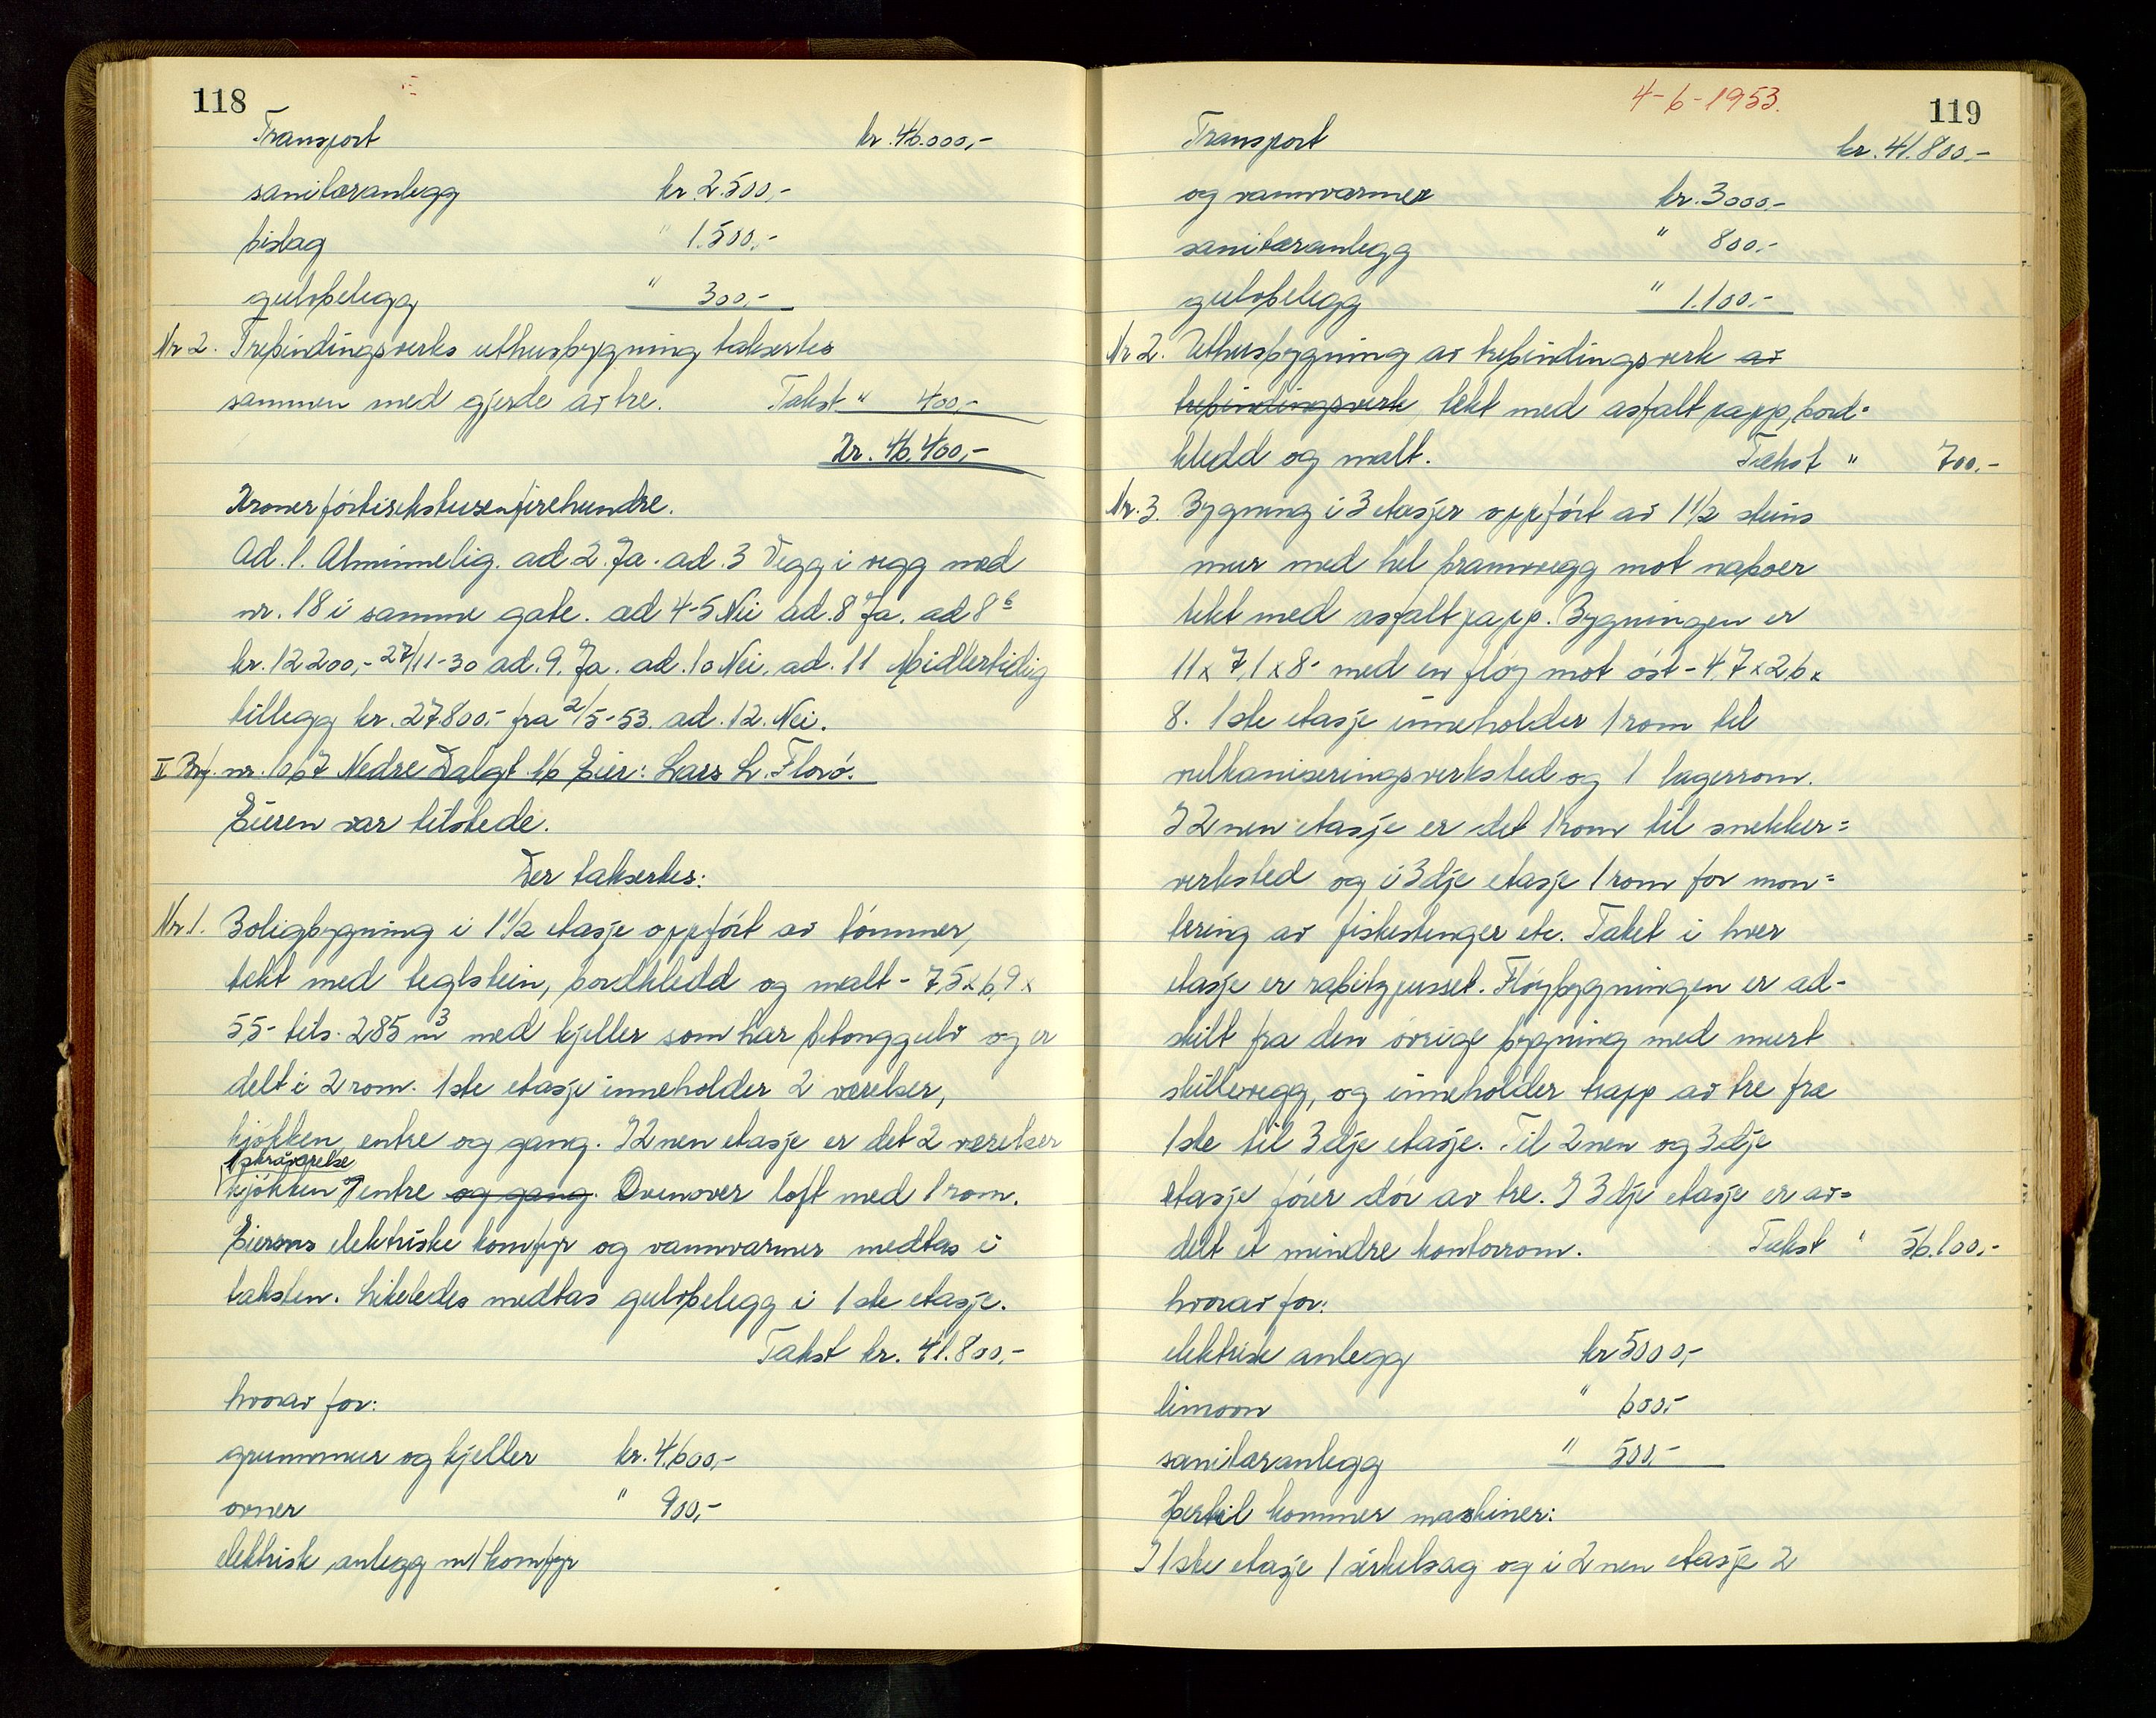 118
Transport kr. 46.000,-
sanitæranlegg kr. 2.500,-
bislag " 1.500,-
gulvbelegg " 300,-
Nr 2. Trebindingsverks uthusbygning takseres
sammen med gjerde av tre. Takst " 400,-
Kr. 46.400,-
Kroner førtisekstusenfirehundre.
Ad. 1. Alminnelig. ad. 2. Ja. ad. 3 Vegg i vegg med
nr. 18 i samme gate. ad 4-5 Nei ad. 8 Ja. ad 8 b
kr. 12200,- 27/11-30 ad. 9. Ja. ad. 10 Nei. ad. 11 Midlertidig
tillegg kr. 27.800,- fra 2/5-53. ad. 12. Nei.
II Brf. nr. 1067 Nedre Dalgt 16 Eier: Lars L. Florø.
Eieren var tilstede.
Der taksertes:
Nr 1. Boligbygning i 1 1/2 etasje oppført av tømmer,
tekt med teglstein, bordkledd og malt - 7,5 x 6,9 x
5,5 - tils. 285 m3 med kjeller som har betonggulv og er
delt i 2 rom. 1ste etasje inneholder 2 værelser,
kjøkken, entre og gang. I 2nen etasje er det 2 værelser
1 skråværelse
kjøkken og entre og gang. Ovenover loft med 1 rom.
Eierens elektriske komfyr og vannvarmer medtas i
taksten. Likeledes medtas gulvbelegg i 1ste etasje.
Takst kr. 41.800,-
hvorav for:
grunnmur og kjeller kr. 4.600,-
ovner " 900,-
elektrisk anlegg m/komfyr
4-6-1953.
119
Transport kr. 41.800,-
og vannvarmer kr. 3000,-
sanitæranlegg " 800,-
gulvbelegg " 1.100,-
Nr 2. Uthusbygning av trebindingsverk av
trebindingsverk, tekt med asfaltpapp, bord=
kledd og malt. Takst " 700,-
Nr. 3. Bygning i 3 etasjer oppført av 1 1/2 steins
mur med hel brannvegg mot naboer
tekt med asfaltpapp. Bygningen er
11 x 7,1 x 8 - med en fløy mot øst - 4,7 x 2,6 x
8. 1ste etasje inneholder 1 rom til
vulkaniseringsverksted og 1 lagerrom.
I 2nen etasje er det 1 rom til snekker=
verksted og i 3dje etasje 1 rom for mon=
tering av fiskestenger etc. Taket i hver
etasje er rabitzpusset. Fløybygningen er ad-
skilt fra den øvrige bygning med murt
skillevegg, og inneholder trapp av tre fra
1ste til 3dje etasje. Til 2nen og 3dje
etasje fører dør av tre. I 3dje etasje er av=
delt et mindre kontorrom. Takst " 56.100,-
hvorav for:
elektrisk anlegg kr 5000,-
limovn " 600,-
sanitæranlegg " 500,-
Hertil kommer maskiner:
I 1ste etasje 1 sirkelsag og i 2nen etasje 2